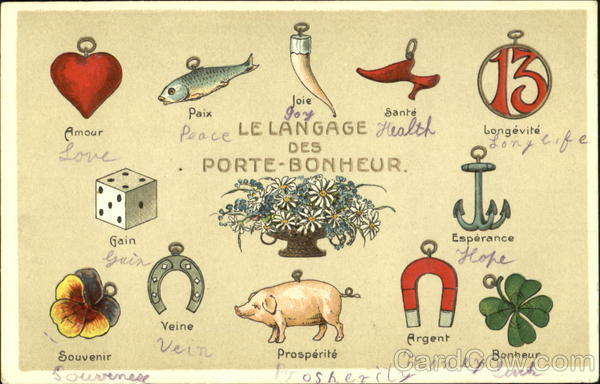 Amour
Love
Paix
Peace
Joie
Joy
Santé
Health
13
Longévité
Long life
LE LANGAGE
DES
PORTE-BONHEUR.
Gain
Gain
Espérance
Hope
Souvenir
Souvenese
Veine
Vein
Prospérité
Prosherity
Argent
Bonheur
Luck
CardCow.com